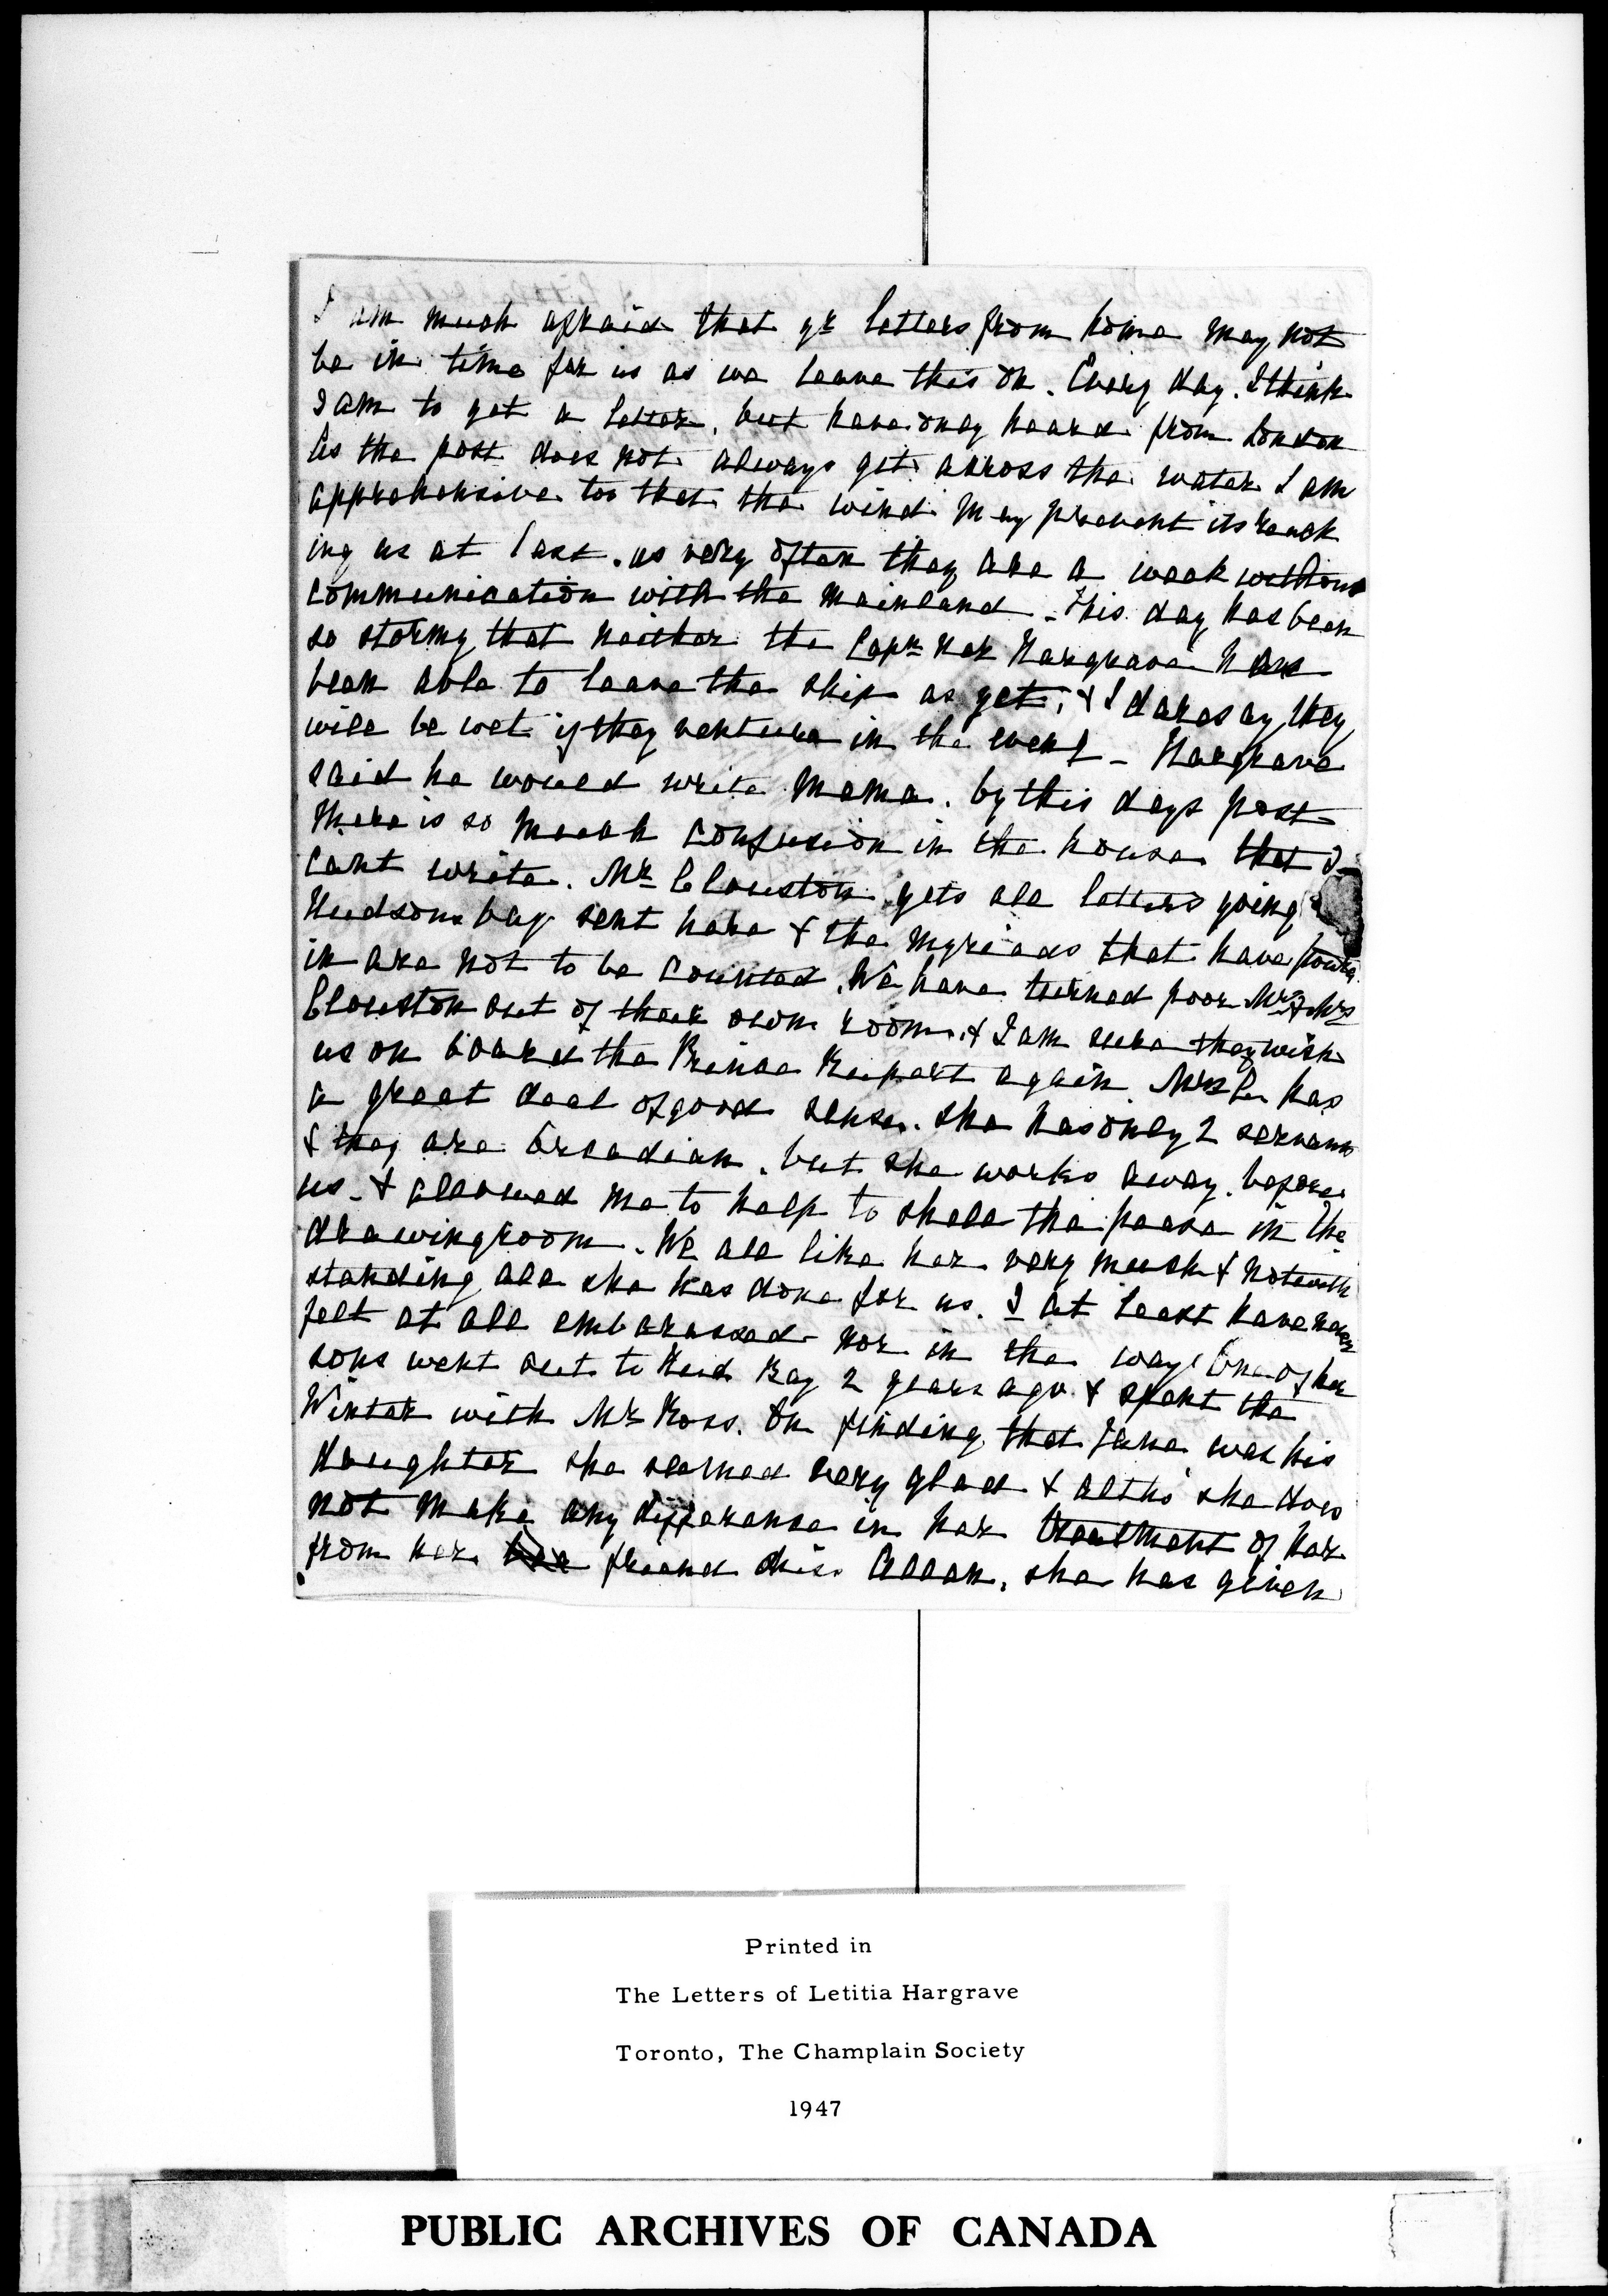 I am much afraid that yr letters from home may not
be in time for us as we leave this on. Every day I think
I am to get a letter, but have only heard from London
As the post does not always get across the water I am
apprehensive too that the wind may prevent its reach
ing us at last, as very often they are a week without
communication with the mainland - This day has been
so stormy that neither the Capn nor Hargrave have
been able to leave the ship as yet, & I daresay they
will be wet if they venture in the eveng - Hargrave
said he would write Mama by this days post
There is so much confusion in the house that I
cant write. Mr Clouston gets all letters going
Hudsons bay sent here & the myriads that have poured
in are not to be counted. We have turned poor Mr & Mrs
Clouston out of their own room & I am sure they wish
us on board the Prince Rupert again. Mrs C. has
a great deal of good sense. She has only 2 servants
& they are Orcadian, but she works away before
us & allowed me to help to shell the pease in the
drawingroom. We all like her very much & notwith
standing all she has done for us. I at least have never
felt at all embarassed nor in the way. One of her
sons went out to Hud Bay 2 years ago & spent the
Winter with Mr Ross. On finding that Jane was his
daughter she seemed very glad & altho' she does
not make any difference in her treatment of her
from her friend Miss Allan, she has given
Printed in
The Letters of Letitia Hargrave
Toronto, The Champlain Society
1947
PUBLIC ARCHIVES OF CANADA